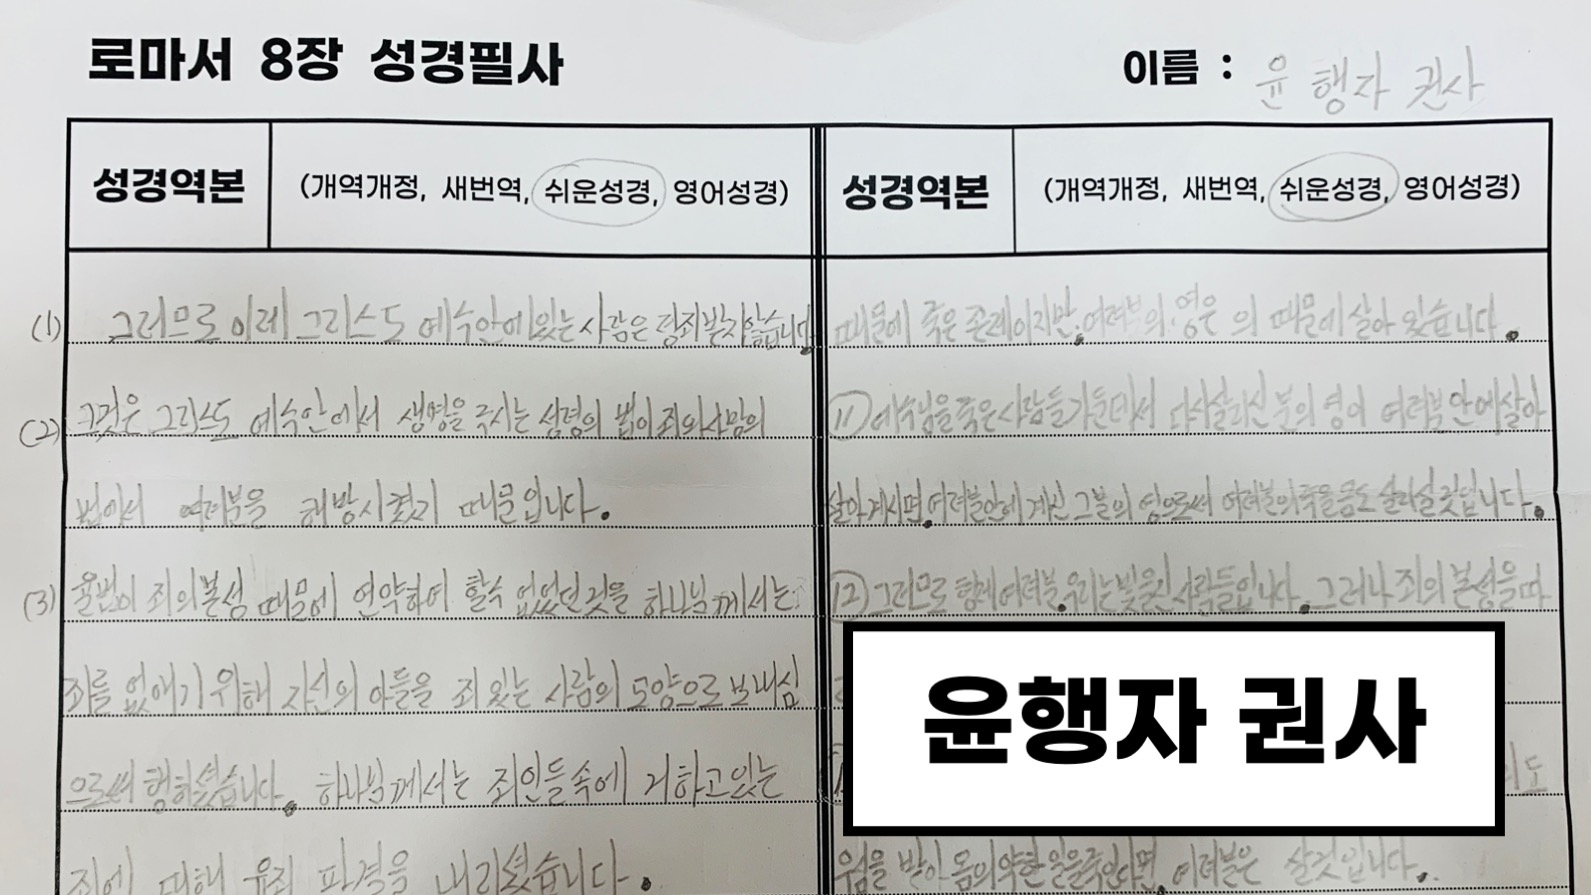 로마서 8장 성경필사
이름 : 윤 행자 권사
성경역본 (개역개정, 새번역, 쉬운성경, 영어성경)
(1) 그러므로 이제 그리스도 예수안에있는 사람은 정죄받지않습니다.
(2) 그것은 그리스도 예수안에서 생명을 주시는 성령의 법이 죄와사망의
법에서 여러분을 해방시켰기 때문입니다.
(3) 율법이 죄의본성 때문에 연약하여 할수 없었던것을 하나님께서는
죄를 없애기 위해 자신의 아들을 죄 있는 사람의 모양으로 보내심
으로써 행하셨습니다. 하나님께서는 죄인들속에 거하고있는
죄에 대해 유죄 판결을 내리셨습니다.
성경역본 (개역개정, 새번역, 쉬운성경, 영어성경)
때문에 죽은 존재이지만, 여러분의 영은 의 때문에 살아 있습니다.
11) 예수님을 죽은 사람들 가운데서 다시살리신 분의 영이 여러분 안에 살아
살아계시면, 여러분안에 계신 그분의 영으로써 여러분의 죽을몸도 살리실것입니다.
12) 그러므로 형제 여러분, 우리는 빚을진 사람들입니다. 그러나 죄의 본성을 따
윤행자 권사
도
움을 받아 몸의 악한 일을 죽인다면, 여러분은 살것입니다.